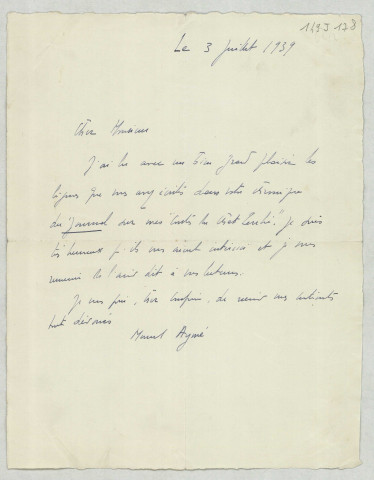 149 J 178
Le 3 juillet 1939
Cher Monsieur
J'ai lu avec un bien grand plaisir les
lignes que vous avez écrites dans votre chronique
du Journal sur mes "Contes du Chat Perché". Je suis
très heureux qu'ils vous aient intéressé et je vous
remercie de l'avoir dit à vos lecteurs.
Je vous prie, cher, de recevoir mes sentiments
tout dévoués
Marcel Aymé